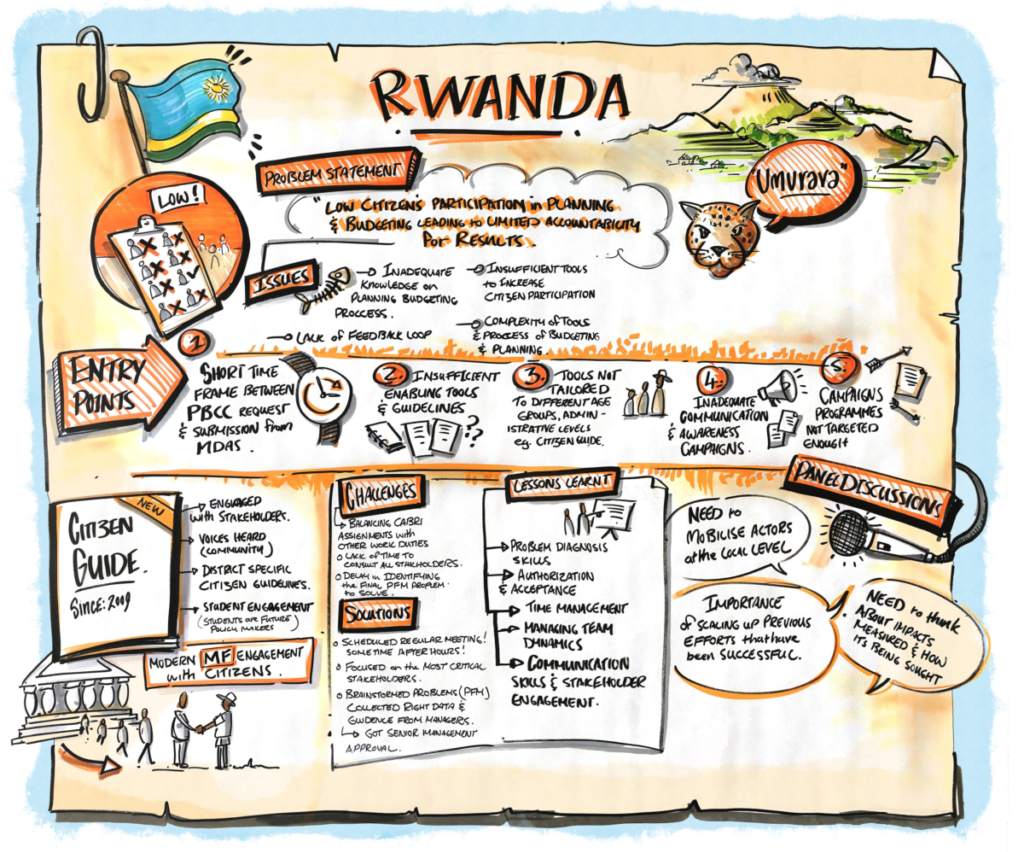 RWANDA
PROBLEM STATEMENT
LOW!
"LOW CITIZENS' PARTICIPATION in PLANNING
& BUDGETING LEADING to LIMITED ACCOUNTABILITY
for RESULTS."
"Umurava"
ISSUES
INADEQUATE
KNOWLEDGE on
PLANNING BUDGETING
PROCCESS.
INSUFFICIENT TOOLS
to INCREASE
CITIZEN PARTICIPATION
LACK of FEEDBACK LOOP
COMPLEXITY of TOOLS
& PROCESS of BUDGETING
& PLANNING
ENTRY
POINTS
1
SHORT TIME
FRAME BETWEEN
PBCC REQUEST
& SUBMISSION from
MDAS.
2. INSUFFICIENT
ENABLING TOOLS
& GUIDELINES
???
3. TOOLS NOT
TAILORED
TO DIFFERENT AGE
GROUPS, ADMIN-
ISTRATIVE LEVELS
eg. CITIZEN GUIDE.
4.
INADEQUATE
COMMUNICATION
& AWARENESS
CAMPAIGNS.
5.
CAMPAIGNS
PROGRAMMES
NOT TARGETED
ENOUGH
NEW
CITIZEN
GUIDE.
Since: 2009
ENGAGED
with STAKEHOLDERS.
VOICES HEARD
(COMMUNITY)
DISTRICT SPECIFIC
CITIZEN GUIDELINES.
STUDENT ENGAGEMENT
(STUDENTS are FUTURE)
POLICY MAKERS
MODERN MF ENGAGEMENT
with CITIZENS.
CHALLENGES
BALANCING CABRI
ASSIGNMENTS with
OTHER WORK DUTIES
LACK of TIME to
CONSULT ALL STAKEHOLDERS.
DELAY in IDENTIFYING
the FINAL PFM PROBLEM
to SOLVE.
SOLUTIONS
SCHEDULED REGULAR MEETING!
SOMETIME AFTER HOURS!
FOCUSED on the MOST CRITICAL
STAKEHOLDERS.
BRAINSTORMED PROBLEMS (PFM)
COLLECTED RIGHT DATA &
GUIDENCE FROM MANAGERS.
GOT SENIOR MANAGEMENT
APPROVAL.
LESSONS LEARNT
PROBLEM DIAGNOSIS
SKILLS
AUTHORIZATION
& ACCEPTANCE
TIME MANAGEMENT
MANAGING TEAM
DYNAMICS
COMMUNICATION
SKILLS & STAKEHOLDER
ENGAGEMENT.
PANEL DISCUSSIONS
NEED to
MOBILISE ACTORS
at the LOCAL LEVEL
IMPORTANCE
of SCALING UP PREVIOUS
EFFORTS that have
been SUCCESSFUL.
NEED to think
ABOUT IMPACTS
MEASURED & HOW
IT'S BEING SOUGHT